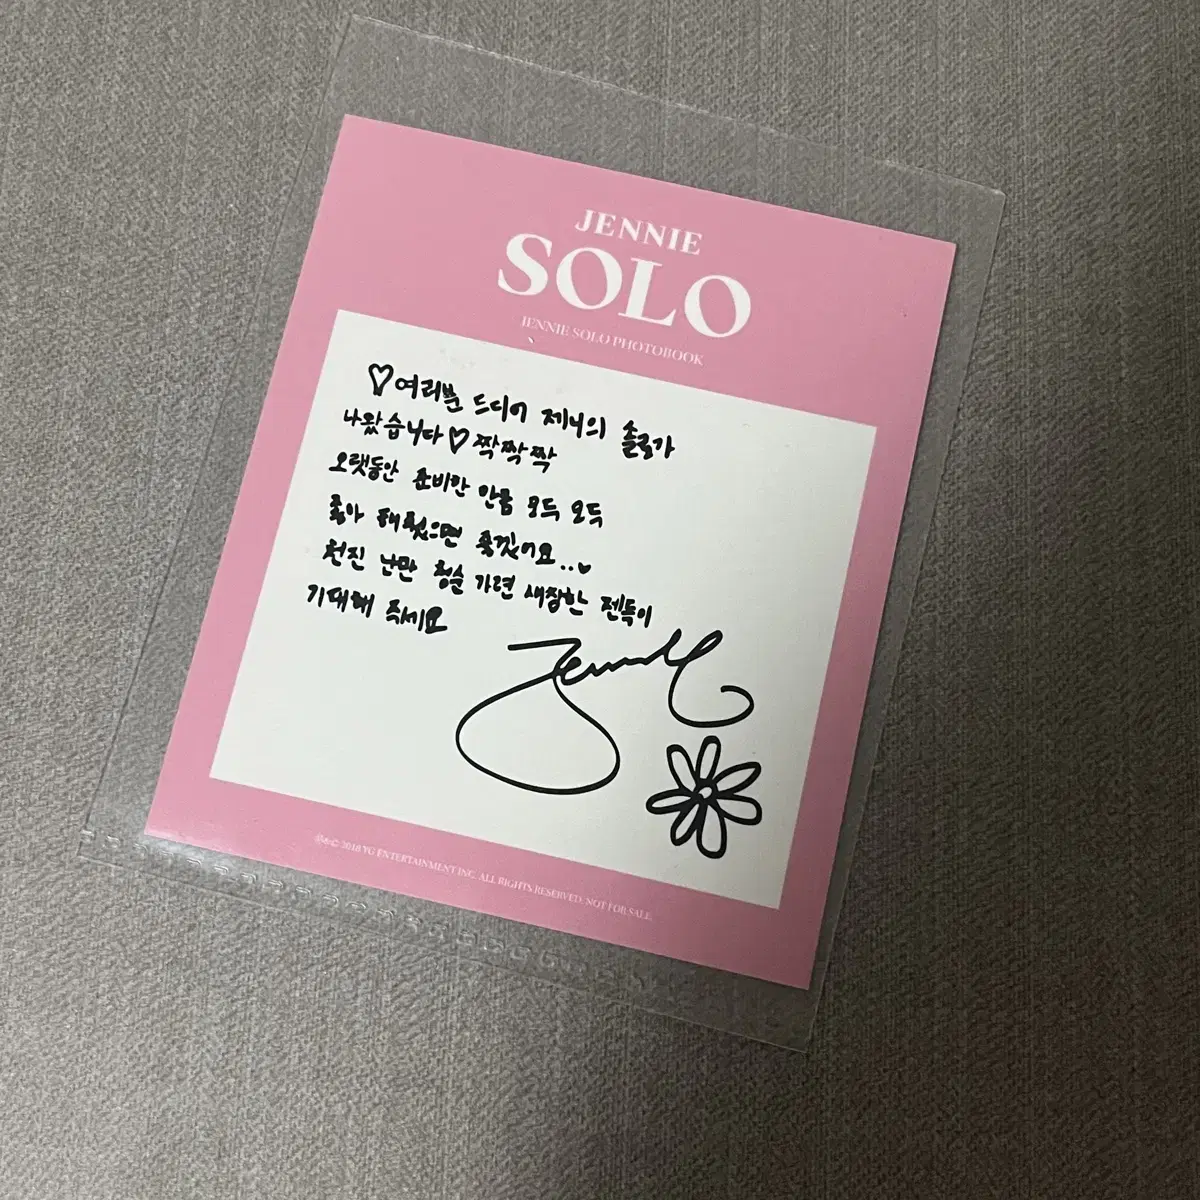 JENNIE
SOLO
JENNIE SOLO PHOTOBOOK
♡여러분 드디어 제니의 솔로가
나왔습니다♡ 짝짝짝
오랫동안 준비한 만큼 모두 모두
좋아 해줬으면 좋겠어요..♥
천진 난만 청순 가련 새침한 젠득이
기대해 주세요
Jennie
℗&© 2018 YG ENTERTAINMENT INC. ALL RIGHTS RESERVED. NOT FOR SALE